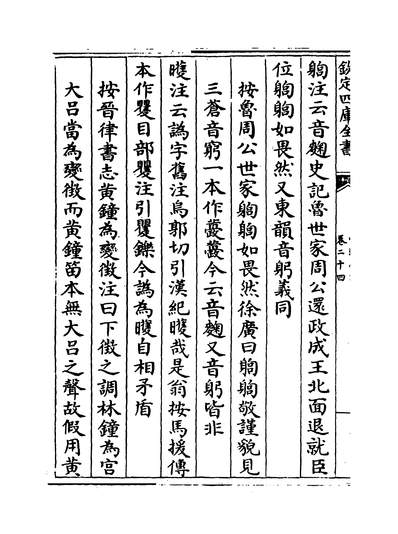 欽定四庫全書
卷二十四
匑注云音麴史記魯世家周公還政成王北面退就臣
位匑匑如畏然又東韻音躬義同
按魯周公世家匑匑如畏然徐廣曰匑匑敬謹貌見
三蒼音窮一本作夔夔今云音麴又音躬皆非
矆注云譌字舊注烏郭切引漢紀矆哉是翁按馬援傳
本作矍目部矍注引矍鑠今譌為矆自相矛盾
按晉律書志黄鐘為變徵注曰下徵之調林鐘為宫
大吕當為變徵而黄鐘笛本無大吕之聲故假用黄